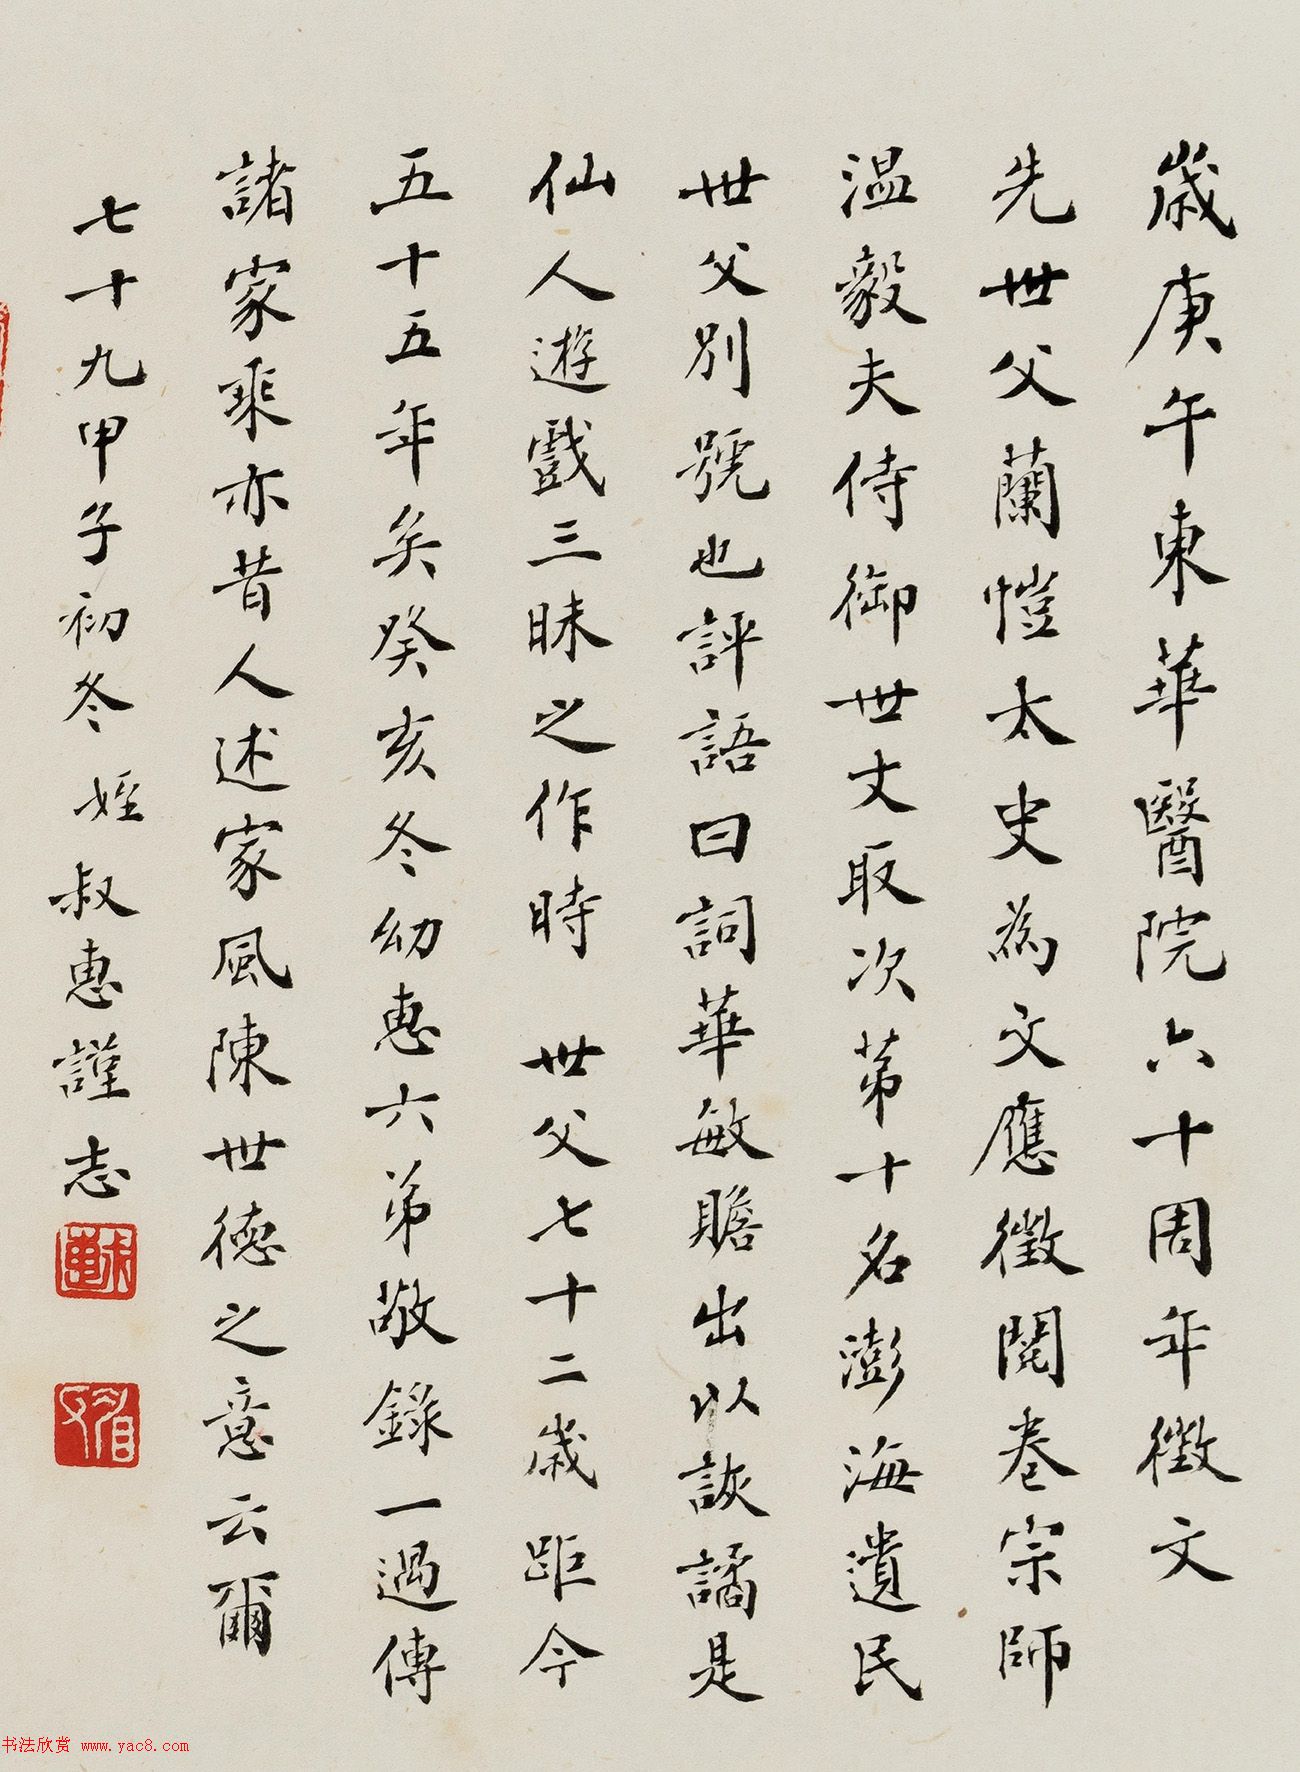 歲庚午東華醫院六十周年徵文
先世父蘭愷太史為文應徵閱卷宗師
温毅夫侍御世丈取次第十名澎海遺民
世父別號也評語曰詞華敏贍出以詼譎是
仙人遊戲三昧之作時　世父七十二歲距今
五十五年矣癸亥冬幼惠六弟敬錄一過傳
諸家乘亦昔人述家風陳世德之意云爾
七十九甲子初冬 姪叔惠謹志
书法欣赏 www.yac8.com